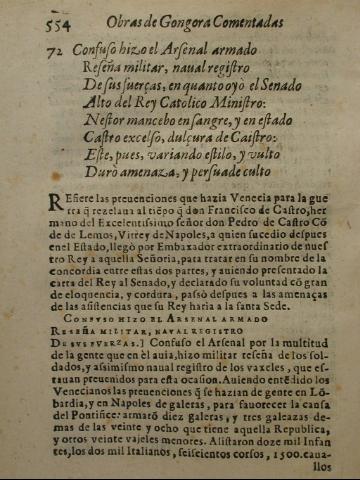 554 Obras de Gongora Comentadas
72 Confuso hizo el Arsenal armado
Reseña militar, naual registro
De sus fuerças, en quanto oyò el Senado
Alto del Rey Catolico Ministro:
Nestor mancebo en sangre, y en estado
Castro excelso, dulçura de Caistro:
Este, pues, variando estilo, y vulto
Duro amenaza, y persuade culto
REfiere las preuenciones que hazia Venecia para la gue
rra q̃ rezelaua al tiẽpo q̃ don Francisco de Castro, her
mano del Excelentissimo señor don Pedro de Castro Cõ
de de Lemos, Virrey de Napoles, a quien sucedio despues
en el Estado, llegò por Embaxador extraordinatio de nues
tro Rey a aquella Señoria, para tratar en su nombre de la
concordia entre estas dos partes, y auiendo presentado la
carta del Rey al Senado, y declarado su voluntad cõ gran
de eloquencia, y cordura, passò despues a las amenaças
de las asistencias que su Rey haria a la santa Sede.
CONFVSO HIZO EL ARSENAL ARMADO
RESEÑA MILITAR, NAVAL REGISTRO
DE SVS FVERZAS.] Confuso el Arsenal por la multitud
de la gente que en èl auia, hizo militar reseña de los sol-
dados, y assimismo naual registro de los vaxeles, que es-
tauan preuenidos para esta ocasion. Auiendo entẽdido los
Venecianos las preuenciones q̃ se hazian de gente en Lõ-
bardia, y en Napoles de galeras, para fauorecer la causa
del Pontifice: armarõ diez galeras, y tres galeazas de-
mas de las veinte y ocho que tiene aquella Republica,
y otros veinte vajeles menores. Alistaron doze mil Infan
tes, los dos mil Italianos, seiscientos corsos, 1500. caua-
llos